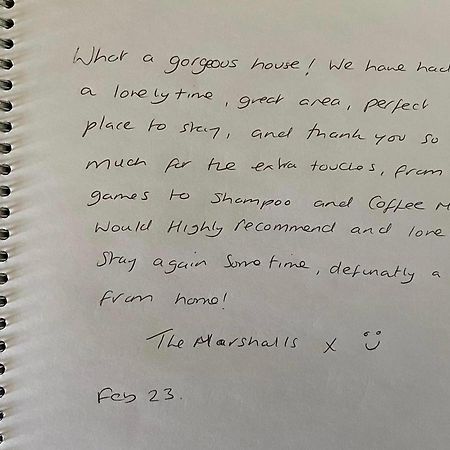 What a gorgeous house! We have had
a lovely time, great area, perfect
place to stay, and thank you so
much for the extra touches, from
games to shampoo and Coffee M
Would Highly recommend and love
stay again sometime, definatly a
from home!
The Marshalls x
Feb 23.